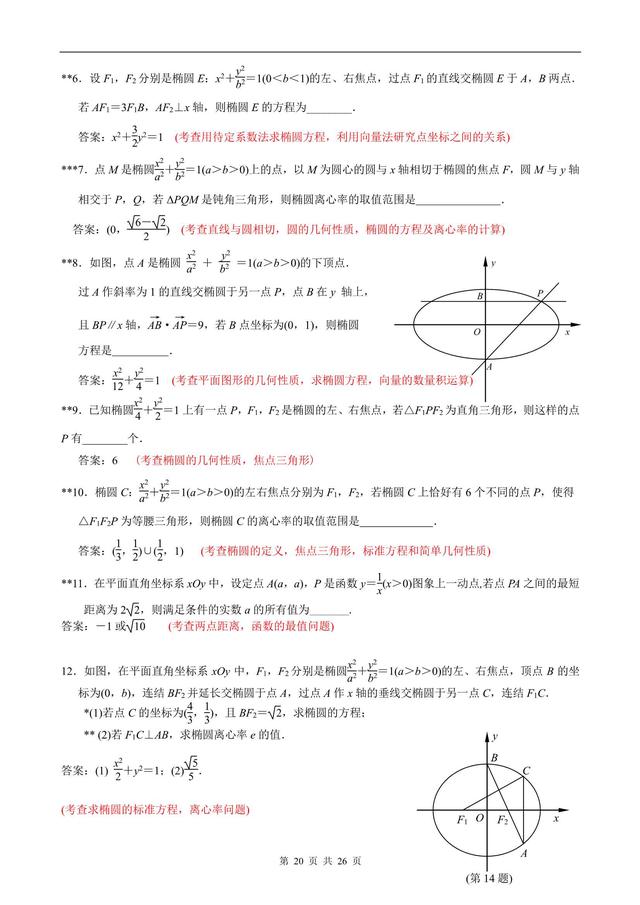 **6．设 F1，F2 分别是椭圆 E：x²＋y²/b²＝1(0＜b＜1)的左、右焦点，过点 F1 的直线交椭圆 E 于 A，B 两点．
若 AF1＝3F1B，AF2⊥x 轴，则椭圆 E 的方程为________．
答案：x²＋3/2y²＝1 (考查用待定系数法求椭圆方程，利用向量法研究点坐标之间的关系)
***7．点 M 是椭圆x²/a²＋y²/b²＝1(a＞b＞0)上的点，以 M 为圆心的圆与 x 轴相切于椭圆的焦点 F，圆 M 与 y 轴
相交于 P，Q，若 ΔPQM 是钝角三角形，则椭圆离心率的取值范围是_______________．
答案：(0，(√6－√2)/2) (考查直线与圆相切，圆的几何性质，椭圆的方程及离心率的计算)
**8．如图，点 A 是椭圆 x²/a² ＋ y²/b² ＝1(a＞b＞0)的下顶点．
过 A 作斜率为 1 的直线交椭圆于另一点 P，点 B 在 y 轴上，
且 BP∥x 轴，AB→·AP→＝9，若 B 点坐标为(0，1)，则椭圆
方程是__________．
y
B
P
O
x
A
答案：x²/12＋y²/4＝1 (考查平面图形的几何性质，求椭圆方程，向量的数量积运算)
**9．已知椭圆x²/4＋y²/2＝1 上有一点 P，F1，F2 是椭圆的左、右焦点，若△F1PF2 为直角三角形，则这样的点
P 有________个．
答案：6 (考查椭圆的几何性质，焦点三角形)
**10．椭圆 C：x²/a²＋y²/b²＝1(a＞b＞0)的左右焦点分别为 F1，F2，若椭圆 C 上恰好有 6 个不同的点 P，使得
△F1F2P 为等腰三角形，则椭圆 C 的离心率的取值范围是_____________．
答案：(1/3，1/2)∪(1/2，1) (考查椭圆的定义，焦点三角形，标准方程和简单几何性质)
**11．在平面直角坐标系 xOy 中，设定点 A(a，a)，P 是函数 y＝1/x(x＞0)图象上一动点,若点 PA 之间的最短
距离为 2√2，则满足条件的实数 a 的所有值为_______．
答案：－1 或√10 (考查两点距离，函数的最值问题)
12．如图，在平面直角坐标系 xOy 中，F1，F2 分别是椭圆x²/a²＋y²/b²＝1(a＞b＞0)的左、右焦点，顶点 B 的坐
标为(0，b)，连结 BF2 并延长交椭圆于点 A，过点 A 作 x 轴的垂线交椭圆于另一点 C，连结 F1C．
*(1)若点 C 的坐标为(4/3，1/3)，且 BF2＝√2，求椭圆的方程；
** (2)若 F1C⊥AB，求椭圆离心率 e 的值．
答案：(1) x²/2＋y²＝1；(2)√5/5．
(考查求椭圆的标准方程，离心率问题)
y
B
C
F1
O
F2
x
A
(第 14 题)
第 20 页 共 26 页